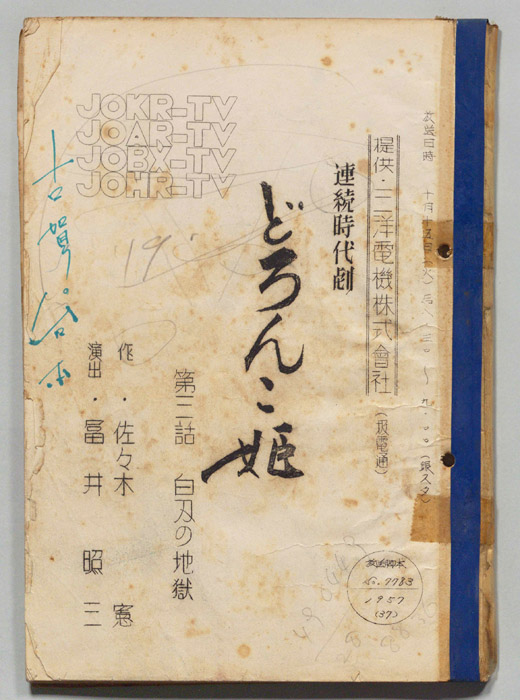 放送日時 十月十五日(火)后
提供・三洋電機株式會社
(扱電通)
連続時代劇
どろんこ姫
第三話 白刃の地獄
作・佐々木 憲
演出・富井 照三
JOKR-TV
JOAR-TV
JOBX-TV
JOHR-TV
放送脚本
No. 7783
1957
(37)